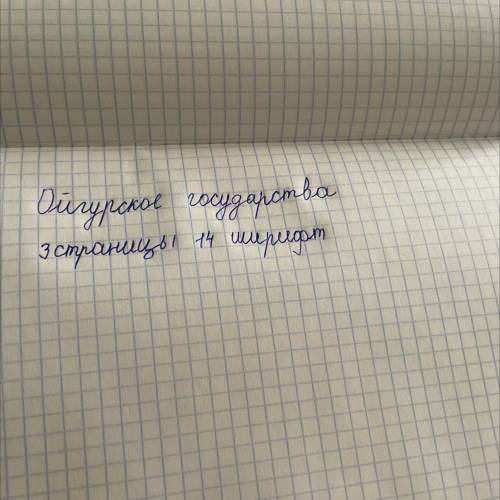 Ойгурское государства
3 страницы 14 ширифт